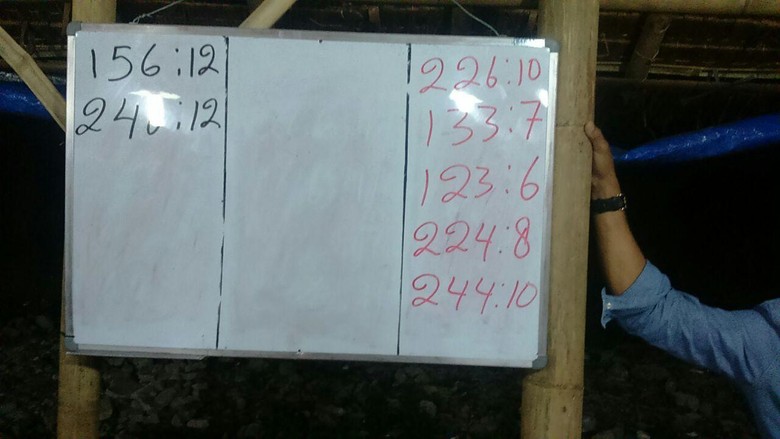 156:12
:12
226:10
133:7
123:6
224:8
244:10